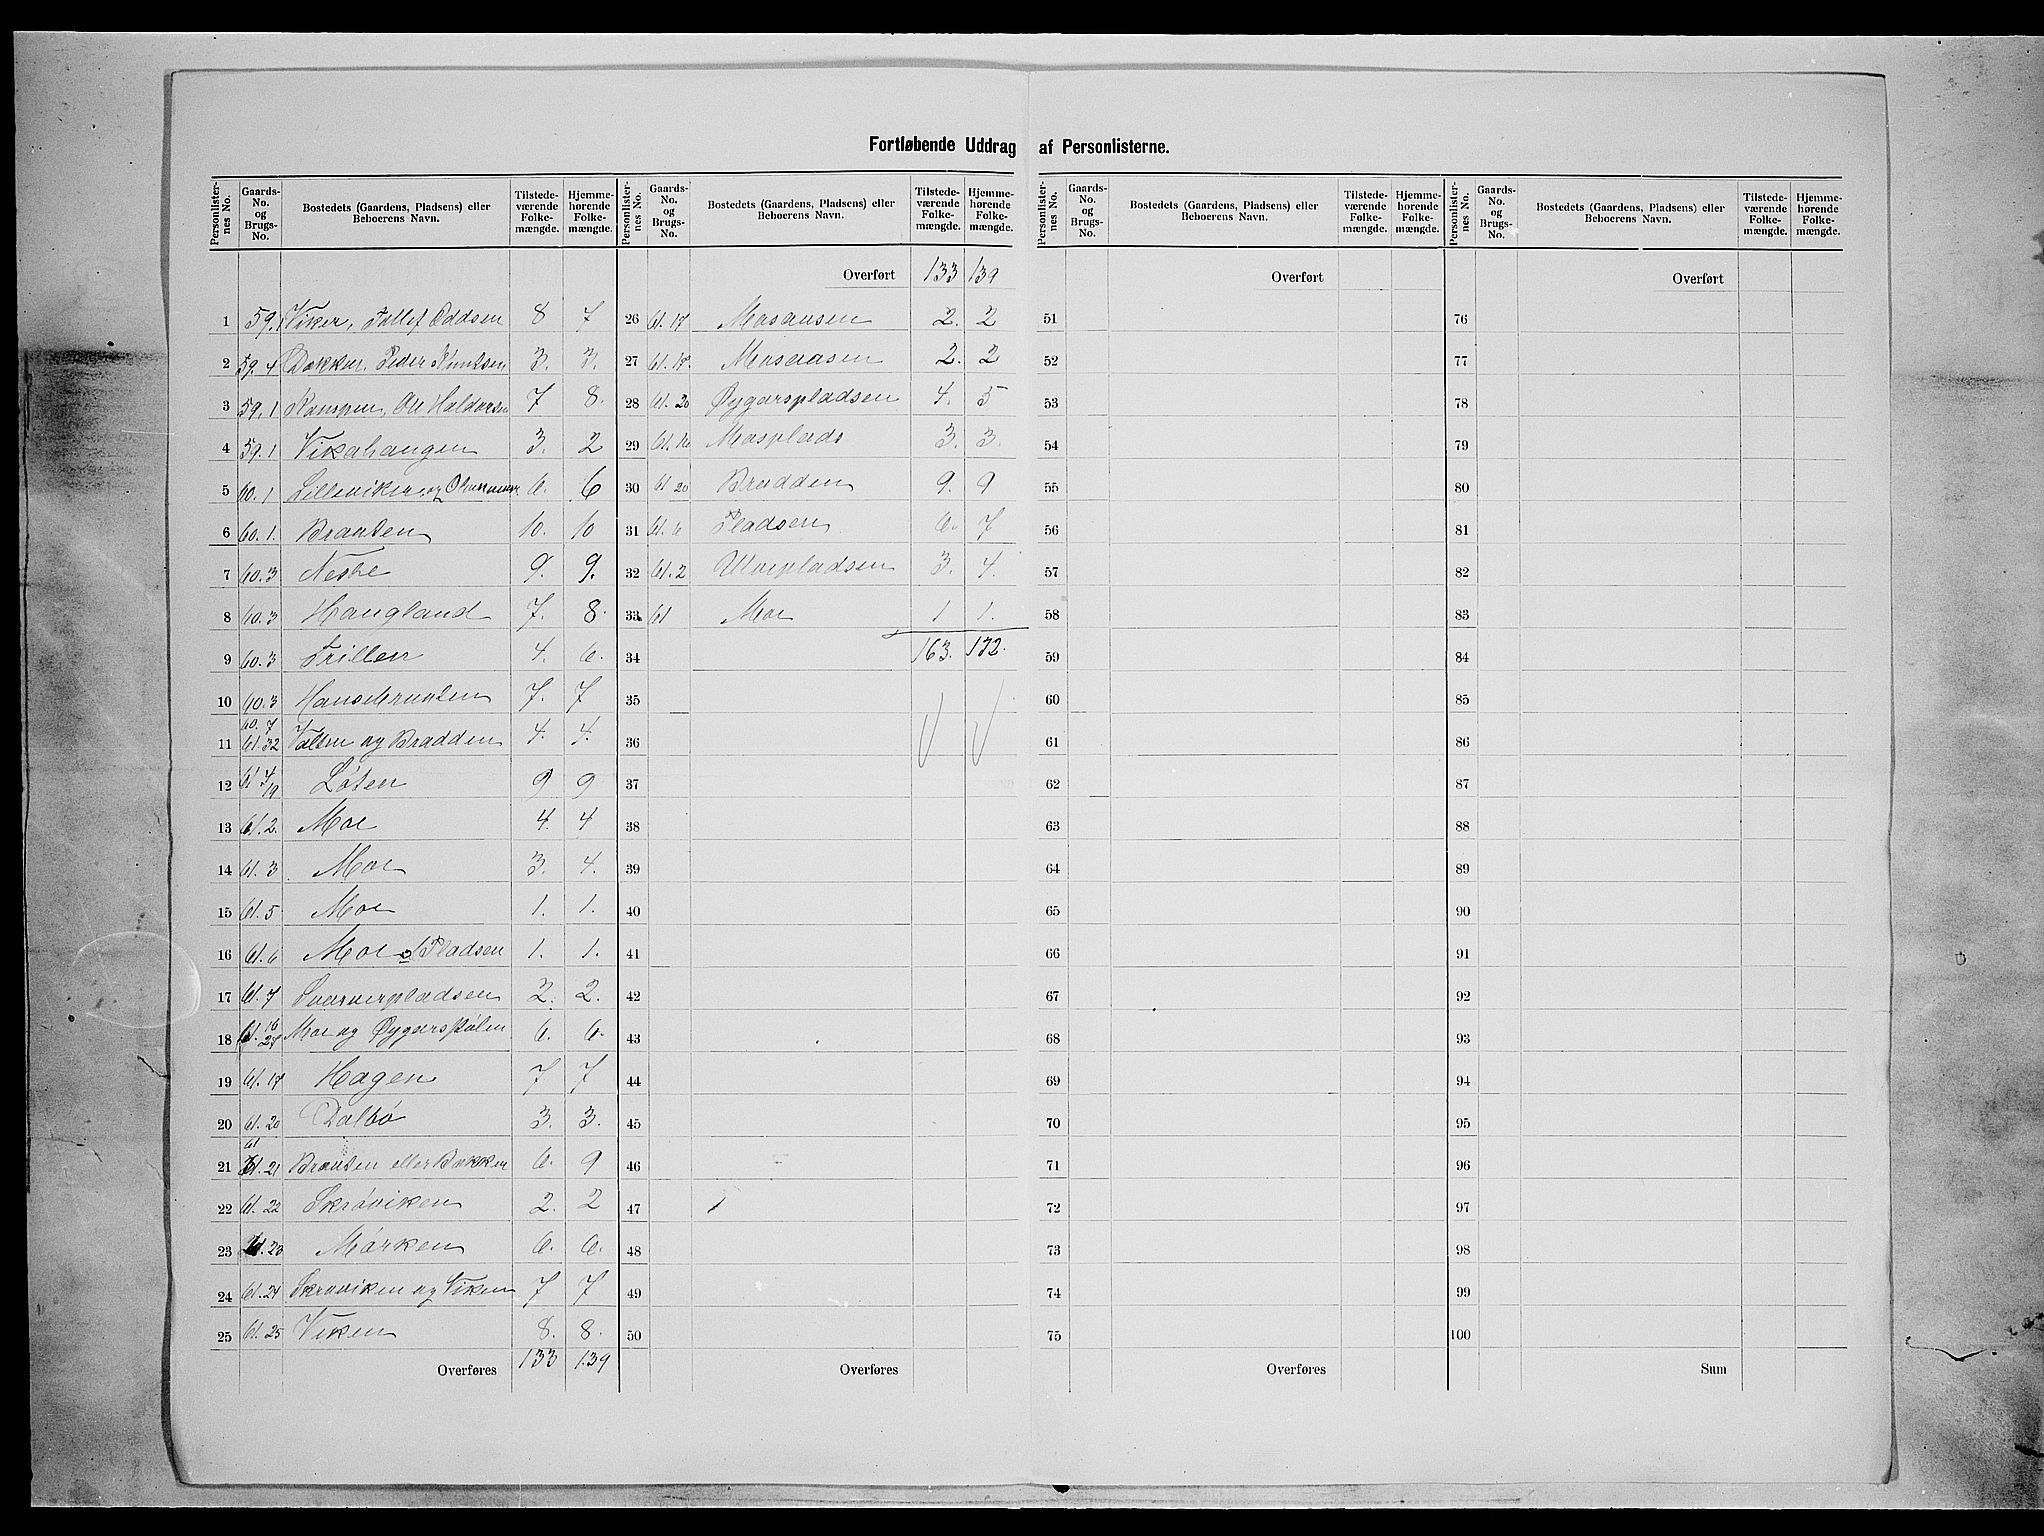 Fortløbende Uddrag af Personlisterne.
Personlisternes No. | Gaards-No. og Brugs-No. | Bostedets (Gaardens, Pladsens) eller Beboerens Navn. | Tilstedeværende Folkemængde. | Hjemmehørende Folkemængde.
1 59.1 Viker, Tollef Oddsen 8 7
2 59.4 Bakken, Peder Knutsen 3. 3.
3 59,1 Kampen, Ole Haldorsen 7 8.
4 59.1 Vikahaugen 3. 2
5 60.1 Lilleviker og 6. 6
6 60.1. Braaten 10. 10
7 60.3 Neste 9. 9.
8 60.3 Haugland 7. 8.
9 60.3 Trillen 4. 6.
10 60.3 Hansebraaten 7. 7
11 60.7 61.32 og Brådden 4. 4.
12 61 4/19 Løten 9 9
13 61.2. Moe 4. 4
14 61.3 Moe 3. 4.
15 61.5 Moe 1. 1.
16 61.6 Moe o/ Pladsen 1. 1.
17 61.7 Svarverpladsen 2. 2.
18 61. 16 27 Moe og 6. 6.
19 61.17 Hagen 7 7
20 61.20 Dalbø 3. 3.
21 61.21 Braaten eller Bakken 6. 9
22 61.22 Skrøviken 2. 2
23 61.23 Mørken 6. 6.
24 61.24 Skrøviken og Viken 7 7
25 61.25 Viken 8. 8.
Overføres 133 139
Overført 133 139
26 61.17 Mosaasen 2. 2
27 61.18. Mosaasen 2. 2
28 61.20 Øygarspladsen 4. 5
29 61.16 Mosplads 3. 3.
30 61 20 Brådden 9. 9
31 61.6 Pladsen 6. 7
32 61.2 Ulvepladsen 3. 4.
33 61 Moe 1 1.
34 163. 172.
35
36
37
38
39
40
41
42
43
44
45
46
47
48
49
50
Overføres
Personlisternes No. | Gaards-No. og Brugs-No. | Bostedets (Gaardens, Pladsens) eller Beboerens Navn. | Tilstedeværende Folkemængde. | Hjemmehørende Folkemængde.
Overført
51
52
53
54
55
56
57
58
59
60
61
62
63
64
65
66
67
68
69
70
71
72
73
74
75
Overføres
Overført
76
77
78
79
80
81
82
83
84
85
86
87
88
89
90
91
92
93
94
95
96
97
98
99
100
Sum